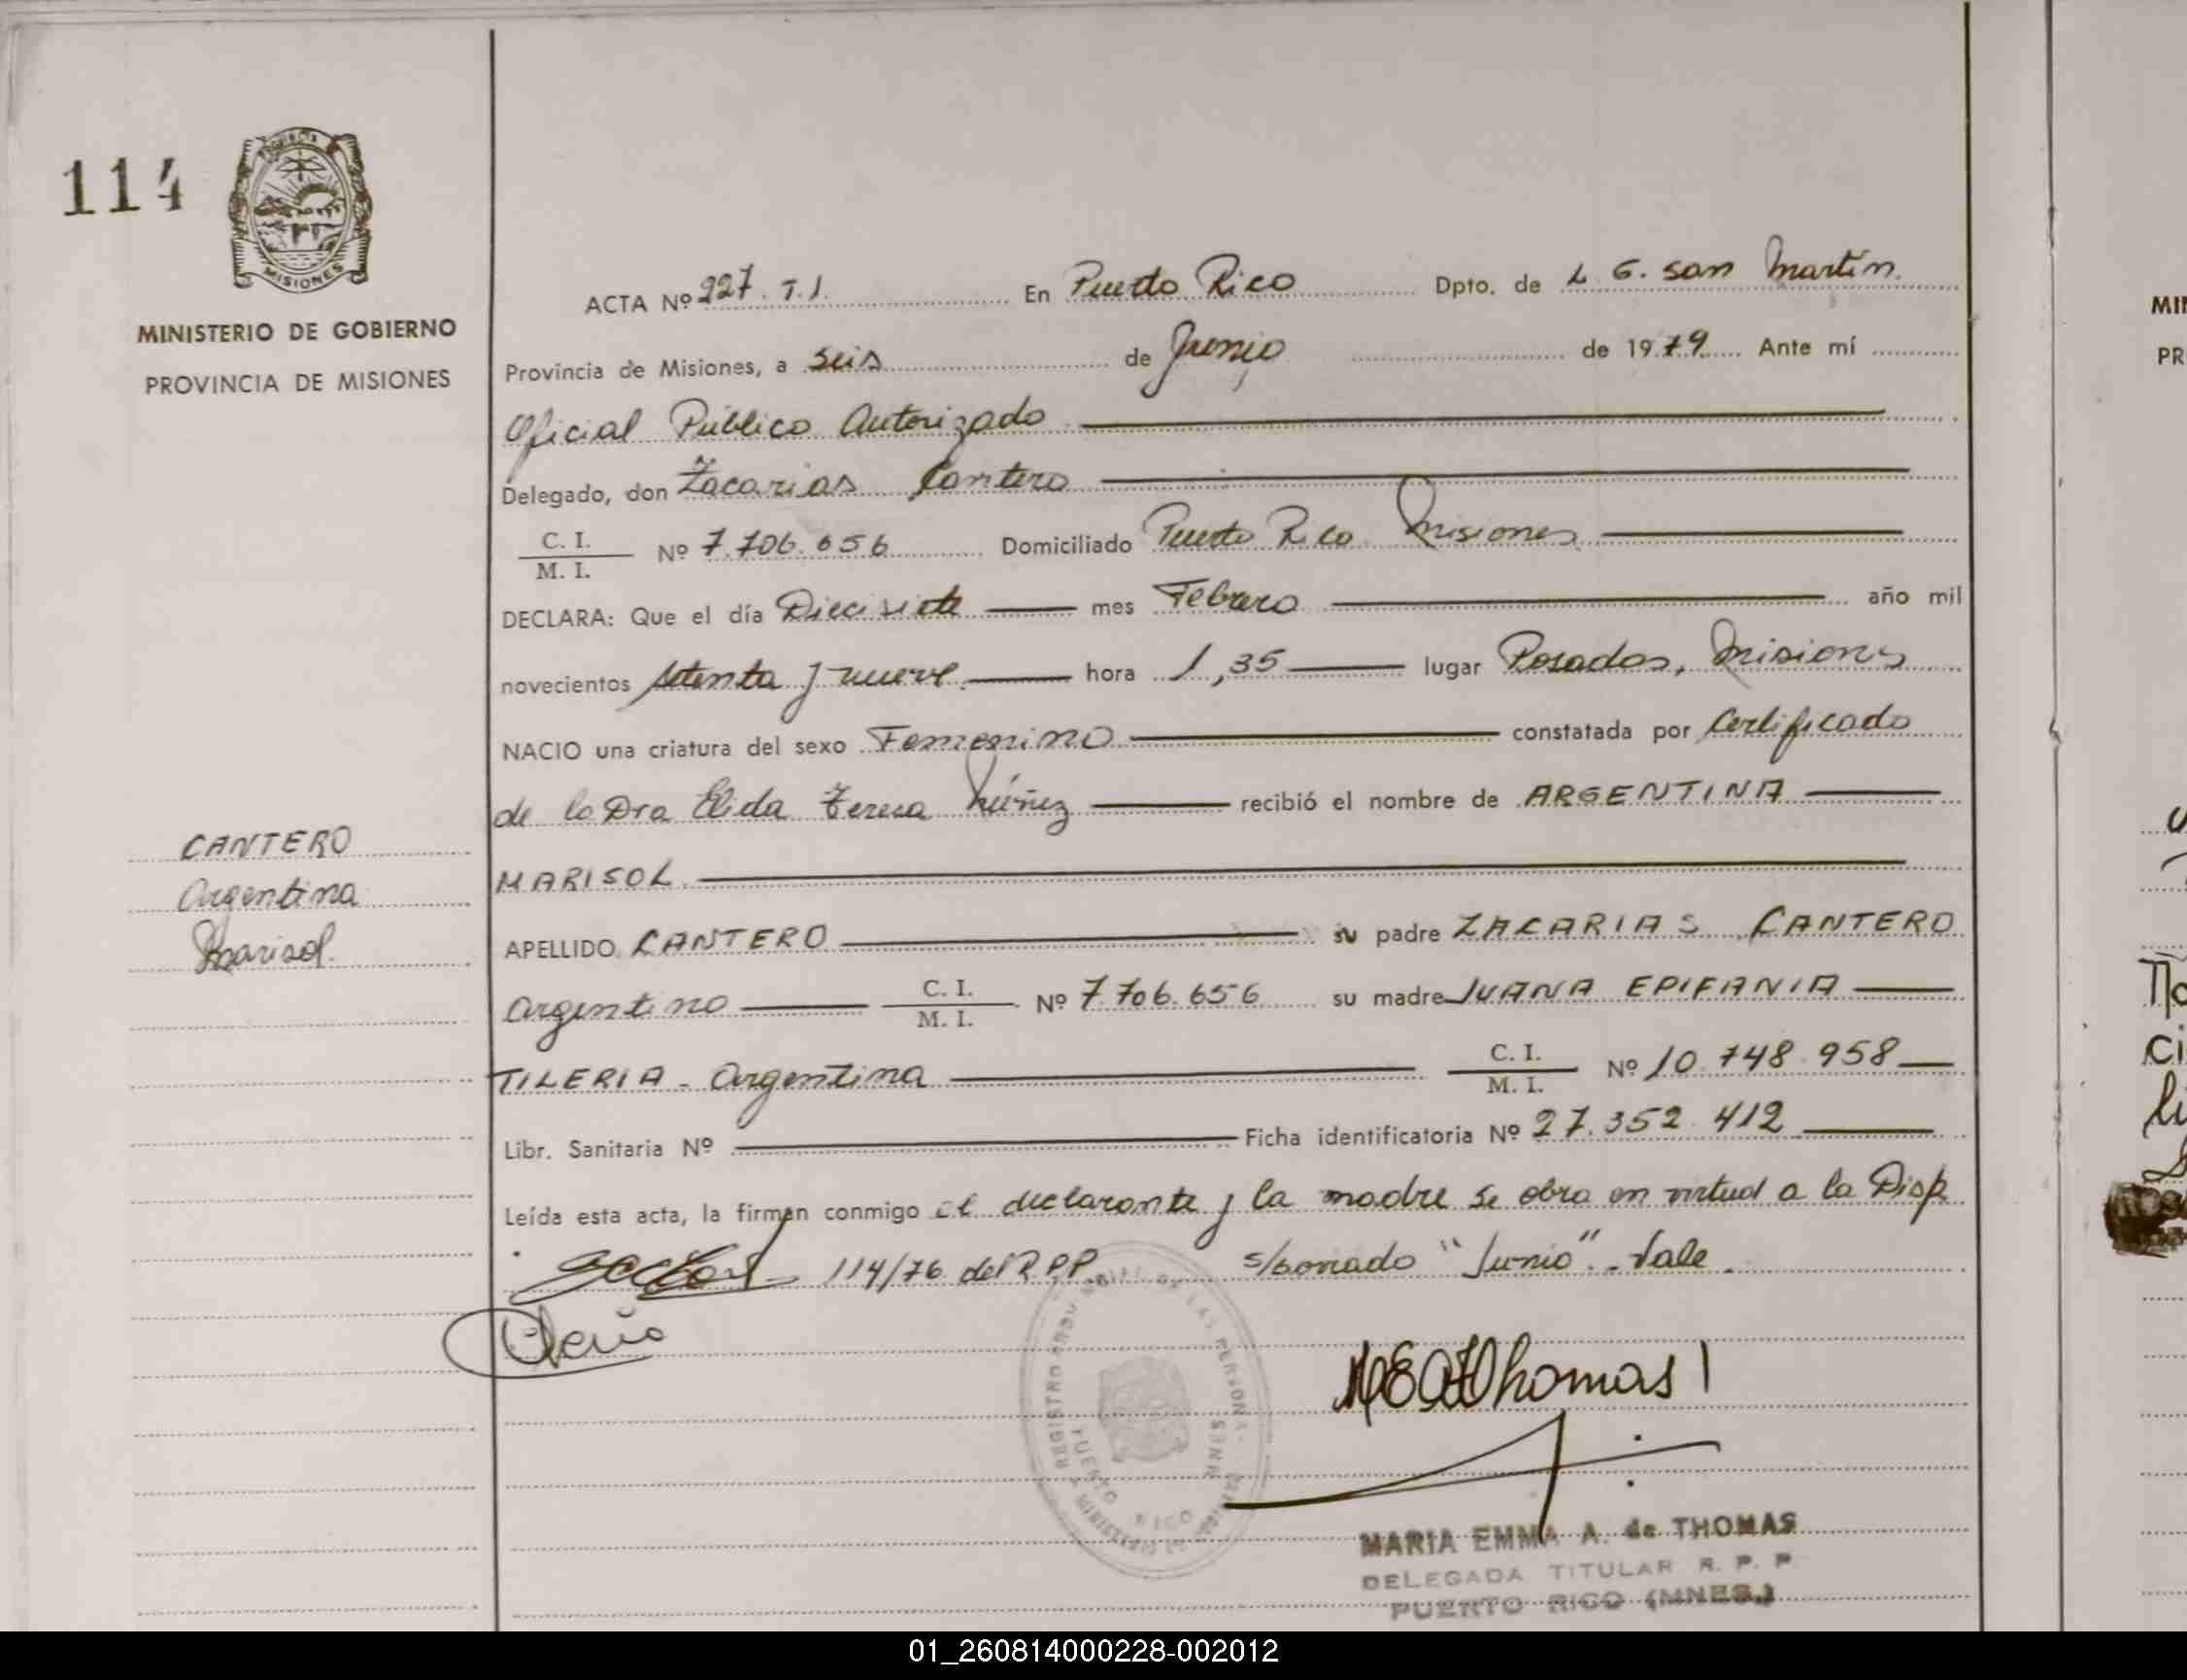 114
MISIONES
MINISTERIO DE GOBIERNO
PROVINCIA DE MISIONES
ACTA Nº 227. T.1. En Puerto Rico Dpto. de L G. San Martín.
Provincia de Misiones, a seis de Junio de 1979 Ante mí
Oficial Público Autorizado
Delegado, don Zacarias Cantero
C. I.
M. I. Nº 7.706.656 Domiciliado Puerto Rico Misiones
DECLARA: Que el día Diecisiete mes Febrero año mil
novecientos setenta y nueve. hora 1,35 lugar Posadas, Misiones
NACIO una criatura del sexo Femenino constatada por Certificado
de la Dra Elida Teresa Núñez recibió el nombre de ARGENTINA
MARISOL.
APELLIDO CANTERO su padre ZACARIAS CANTERO
Argentino C. I.
M. I. Nº 7.706.656 su madre JUANA EPIFANIA
TILERIA - Argentina C. I.
M. I. Nº 10.748.958
Libr. Sanitaria Nº Ficha identificatoria Nº 27.352.412
Leída esta acta, la firman conmigo el declarante y la madre se obra en virtud a la Disp.
114/76 del R.P.P. s/borrado "Junio". Vale.
CANTERO
Argentina
Marisol.
PUERTO RICO
MARIA EMMA A. de THOMAS
DELEGADA TITULAR R. P. P.
PUERTO RICO (MNES.)
01_260814000228-002012